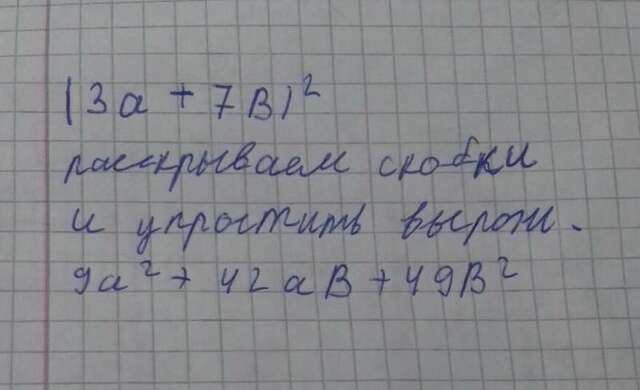 (3а + 7В)²
раскрываем скобки
и упростить вырож.
9а² + 42аВ + 49В²